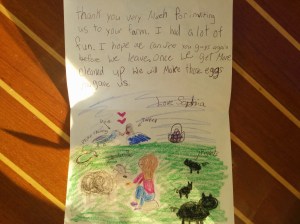 Thank you very much for inviting
us to your farm. I had a lot of
fun. I hope we can see you guys again
before we leave. once we get more
cleaned up we will make those eggs
you gave us.
Love Sophia